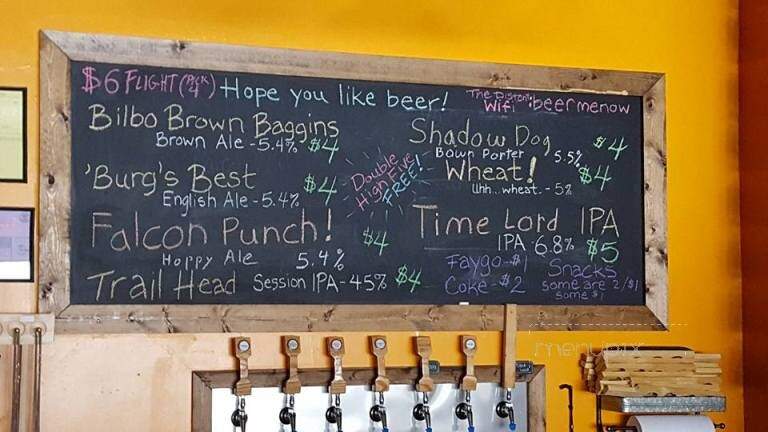 $6 FLIGHT (PICK 4) Hope you like beer!
Wifi: beermenow
Bilbo Brown Baggins
Brown Ale - 5.4% $4
'Burg's Best
English Ale - 5.4% $4
Falcon Punch! $4
Hoppy Ale 5.4%
Trail Head Session IPA - 45% $4
Double
High Five
FREE!
Shadow Dog $4
Bown Porter 5.5%
Wheat! $4
Uhh...wheat. - 5%
Time Lord IPA
IPA - 6.8% $5
Faygo - $1
Coke - $2
Snacks
some are 2/$1
some $1
menupix